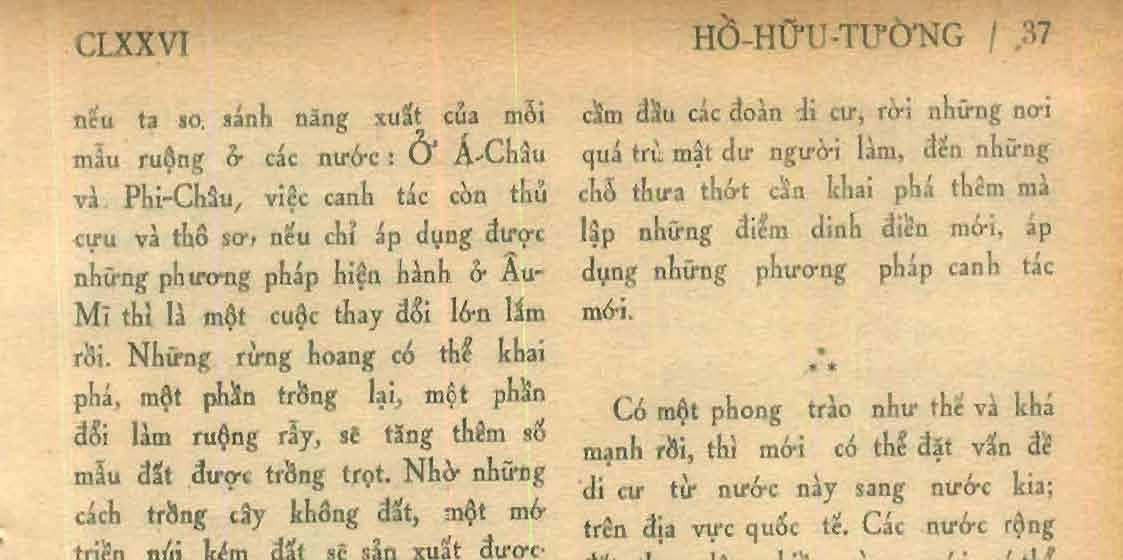 CLXXVI
HỒ-HỮU-TƯỜNG / 37
nếu ta so sánh năng xuất của mỗi
mẫu ruộng ở các nước : Ở Á-Châu
và Phi-Châu, việc canh tác còn thủ
cựu và thô sơ, nếu chỉ áp dụng được
những phương pháp hiện hành ở Âu-
Mĩ thì là một cuộc thay đổi lớn lắm
rồi. Những rừng hoang có thể khai
phá, một phần trồng lại, một phần
đổi làm ruộng rẫy, sẽ tăng thêm số
mẫu đất được trồng trọt. Nhờ những
cách trồng cây không đất, một mớ
triền núi kém đất sẽ sản xuất được
cầm đầu các đoàn di cư, rời những nơi
quá trù mật dư người làm, đến những
chỗ thưa thớt cần khai phá thêm mà
lập những điểm dinh điền mới, áp
dụng những phương pháp canh tác
mới.
Có một phong trào như thế và khá
mạnh rồi, thì mới có thể đặt vấn đề
di cư từ nước này sang nước kia;
trên địa vực quốc tế. Các nước rộng